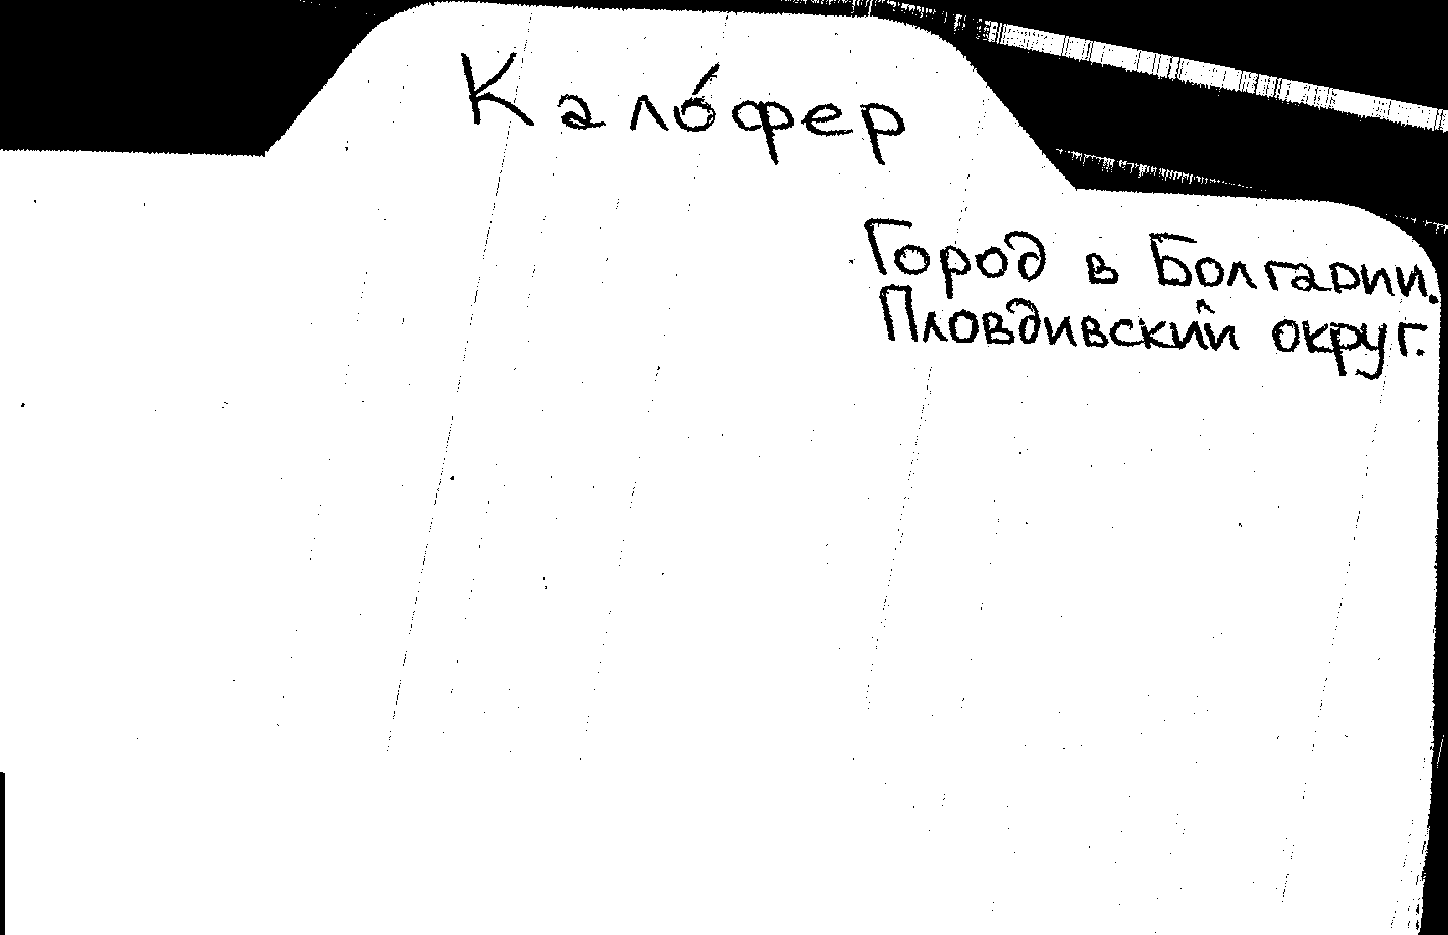 Кало́фер
Город в Болгарии.
Пловдивский округ.